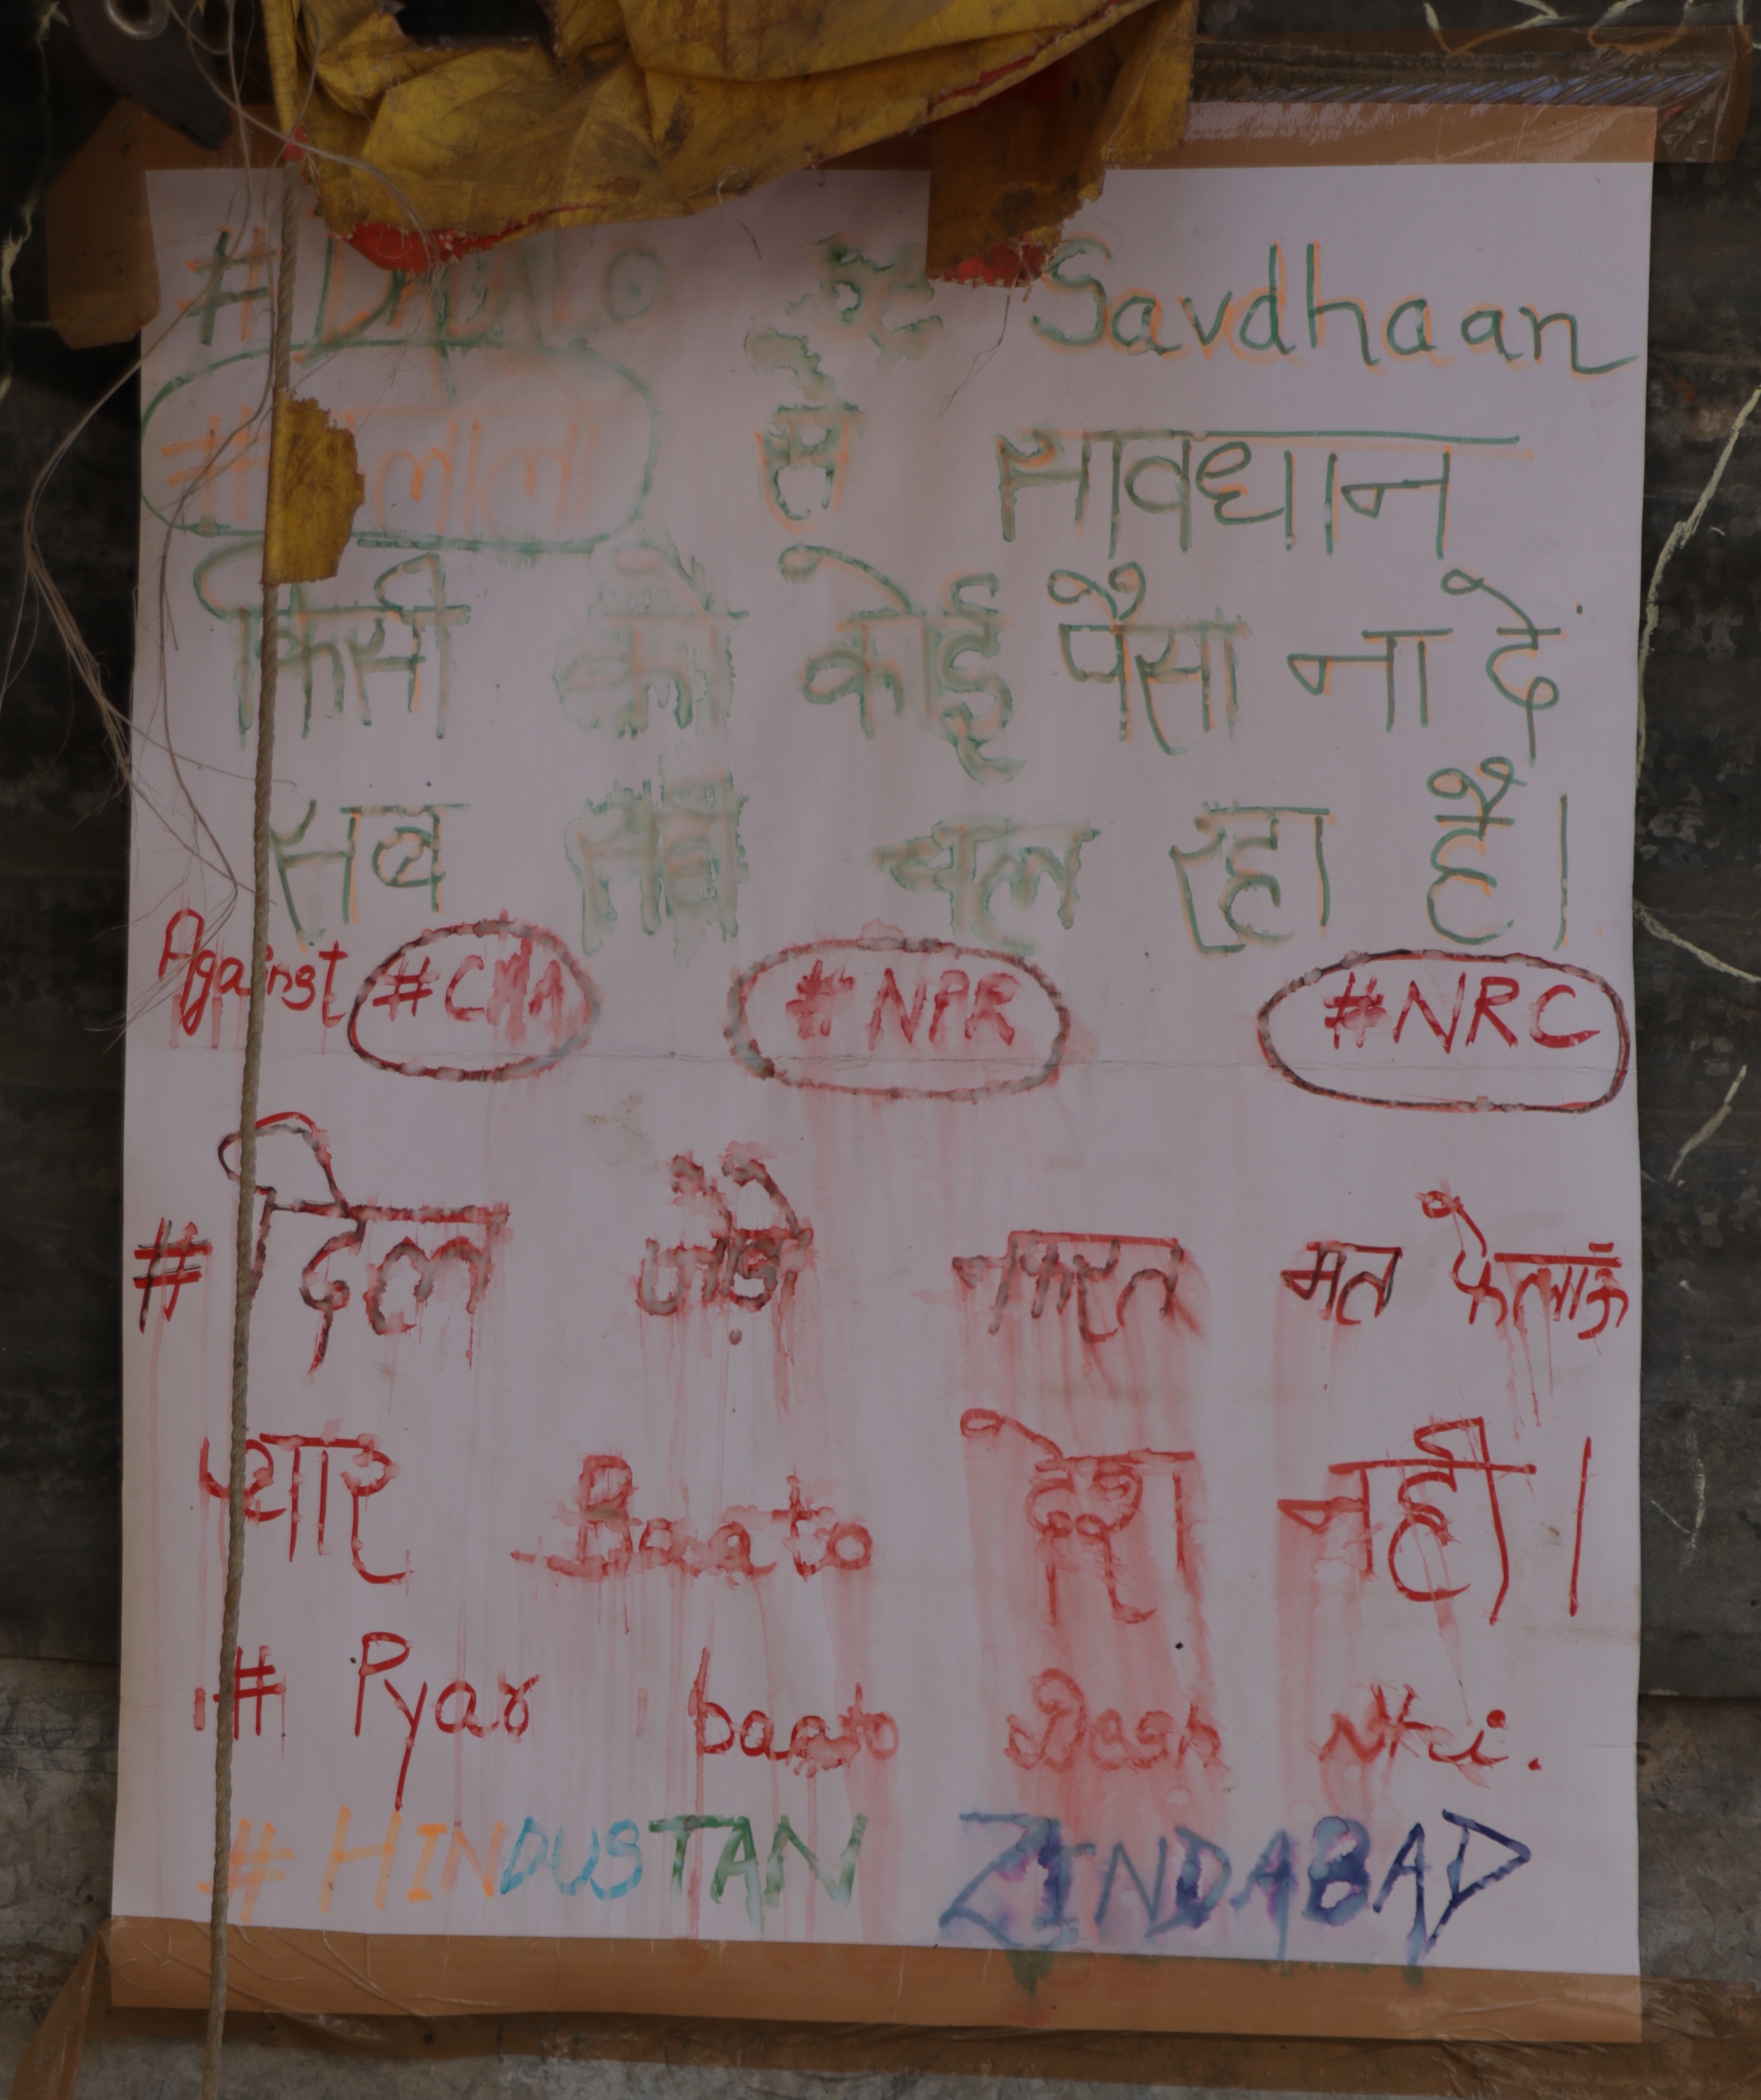 # DALALO से Savdhaan
# दलालो से सावधान
किसी को कोई पैसा ना दें
सब सेवा चल रहा है।
Against #CAA #NPR #NRC
# दिल जोड़ो नफरत मत फैलाऊ
प्यार Baato देश नहीं।
# Pyar baato Desh nhi.
# HINDUSTAN ZINDABAD